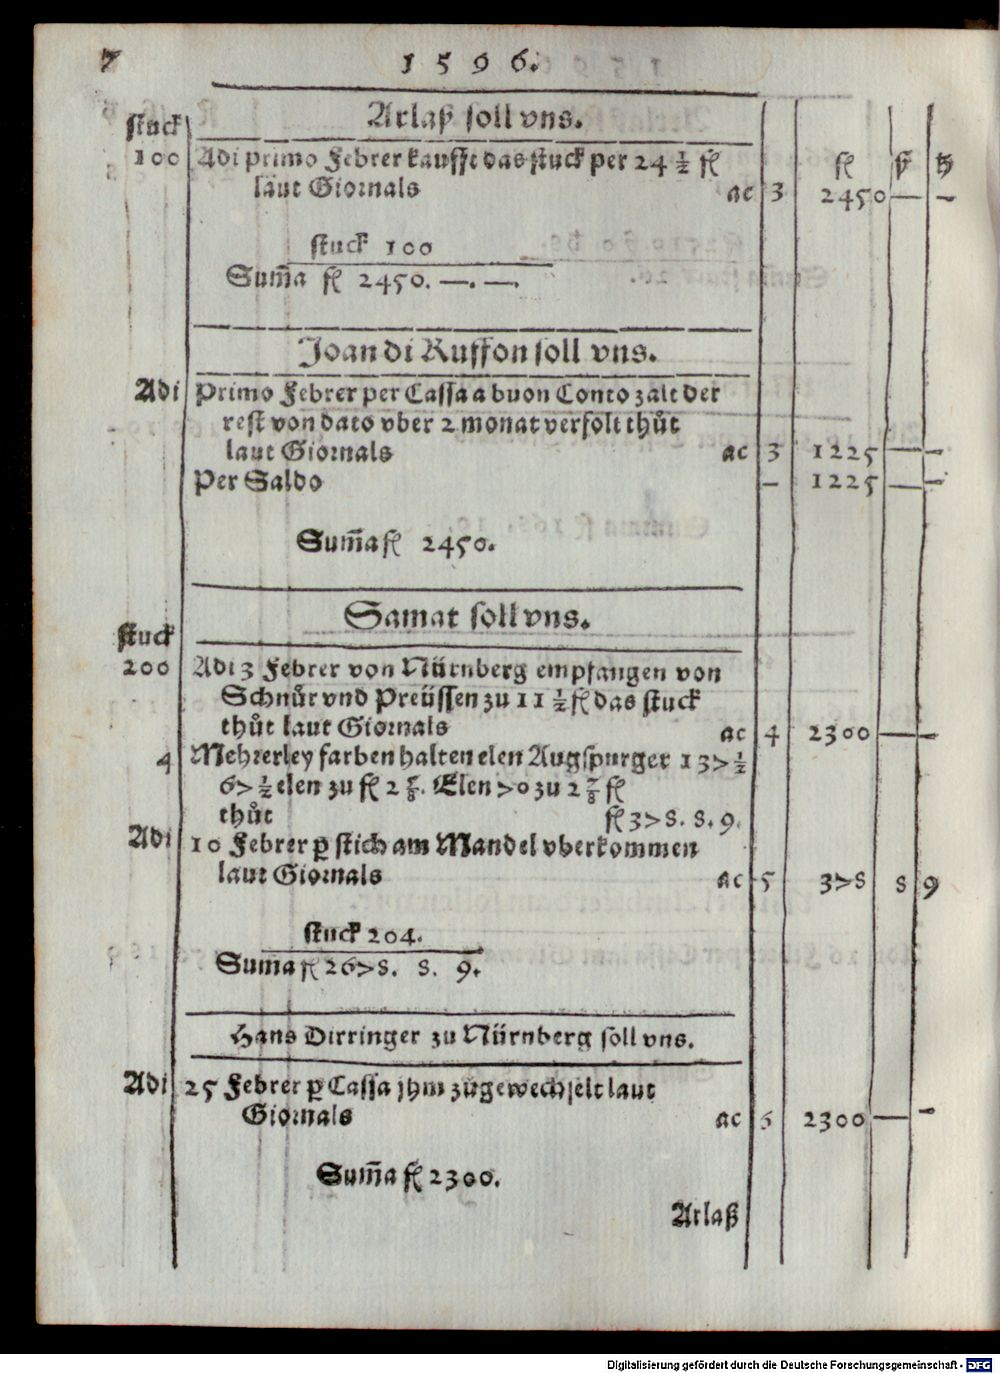 7 1596.
Arlaß soll vns.
stuck
100 Adi primo Febrer kaufft das stuck per 24 ½ fl fl ß ₰
laut Giornals ac 3 2450 — —
stuck 100
Sum̄a fl 2450. —. —.
Joan di Ruffon soll vns.
Adi Primo Febrer per Cassa a buon Conto zalt der
rest von dato vber 2 monat verfolt thůt
laut Giornals ac 3 1225 — —
Per Saldo — 1225 — —
Sum̄a fl 2450.
Samat soll vns.
stuck
200 Adi 3 Febrer von Nürnberg empfangen von
Schnůr vnd Preüssen zu 11 ½ fl das stuck
thůt laut Giornals ac 4 2300 — —
4 Mehrerley farben halten elen Augspurger 137 ½
67 ½ elen zu fl 2 . Elen 70 zu 2 ⅞ fl
thůt fl 378. 8. 9.
Adi 10 Febrer p̱ stich am Mandel vberkommen
laut Giornals ac 5 378 8 9
stuck 204.
Sum̄a fl 2678. 8. 9.
Hans Dirringer zu Nürnberg soll vns.
Adi 25 Febrer p̱ Cassa jhm zugewechselt laut
Giornals ac 6 2300 — —
Sum̄a fl 2300.
Arlaß
Digitalisierung gefördert durch die Deutsche Forschungsgemeinschaft - DFG